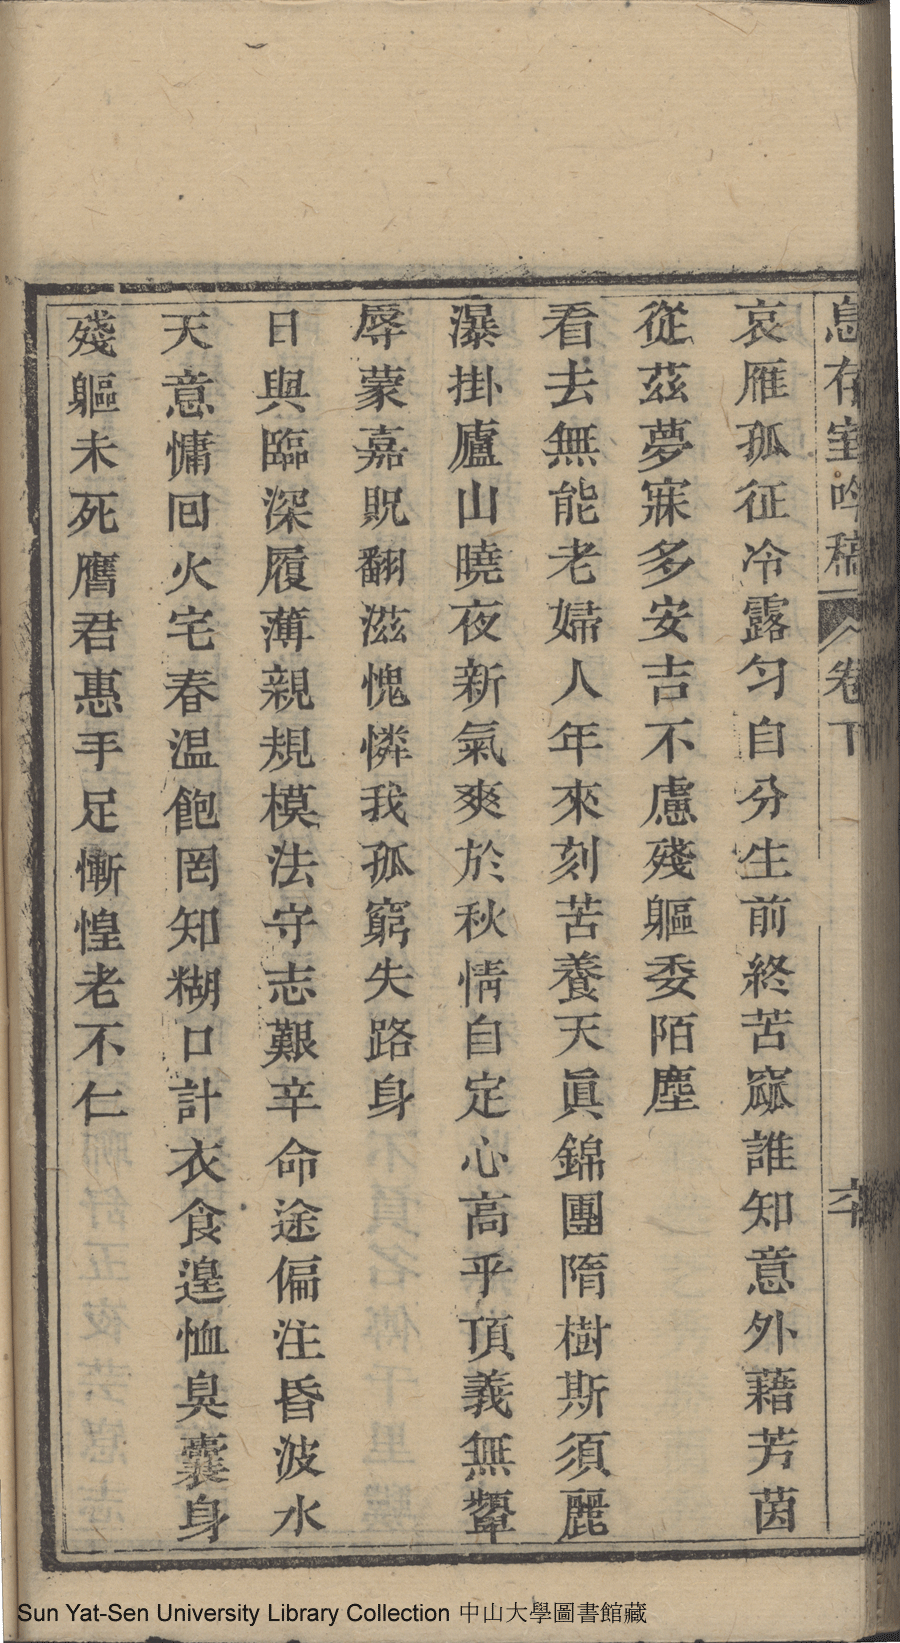 息存室吟稿 卷下 六十
哀雁孤征冷露匀自分生前終苦窳誰知意外藉芳茵
從茲夢寐多安吉不慮殘軀委陌塵
看去無能老婦人年來刻苦養天眞錦團隋樹斯須麗
瀑掛廬山曉夜新氣爽於秋情自定心高乎頂義無顰
辱蒙嘉貺翻滋愧憐我孤窮失路身
日與臨深履薄親規模法守志艱辛命途偏注昏波水
天意慵回火宅春温飽罔知糊口計衣食遑恤臭囊身
殘軀未死膺君惠手足慚惶老不仁
Sun Yat-Sen University Library Collection 中山大學圖書館藏